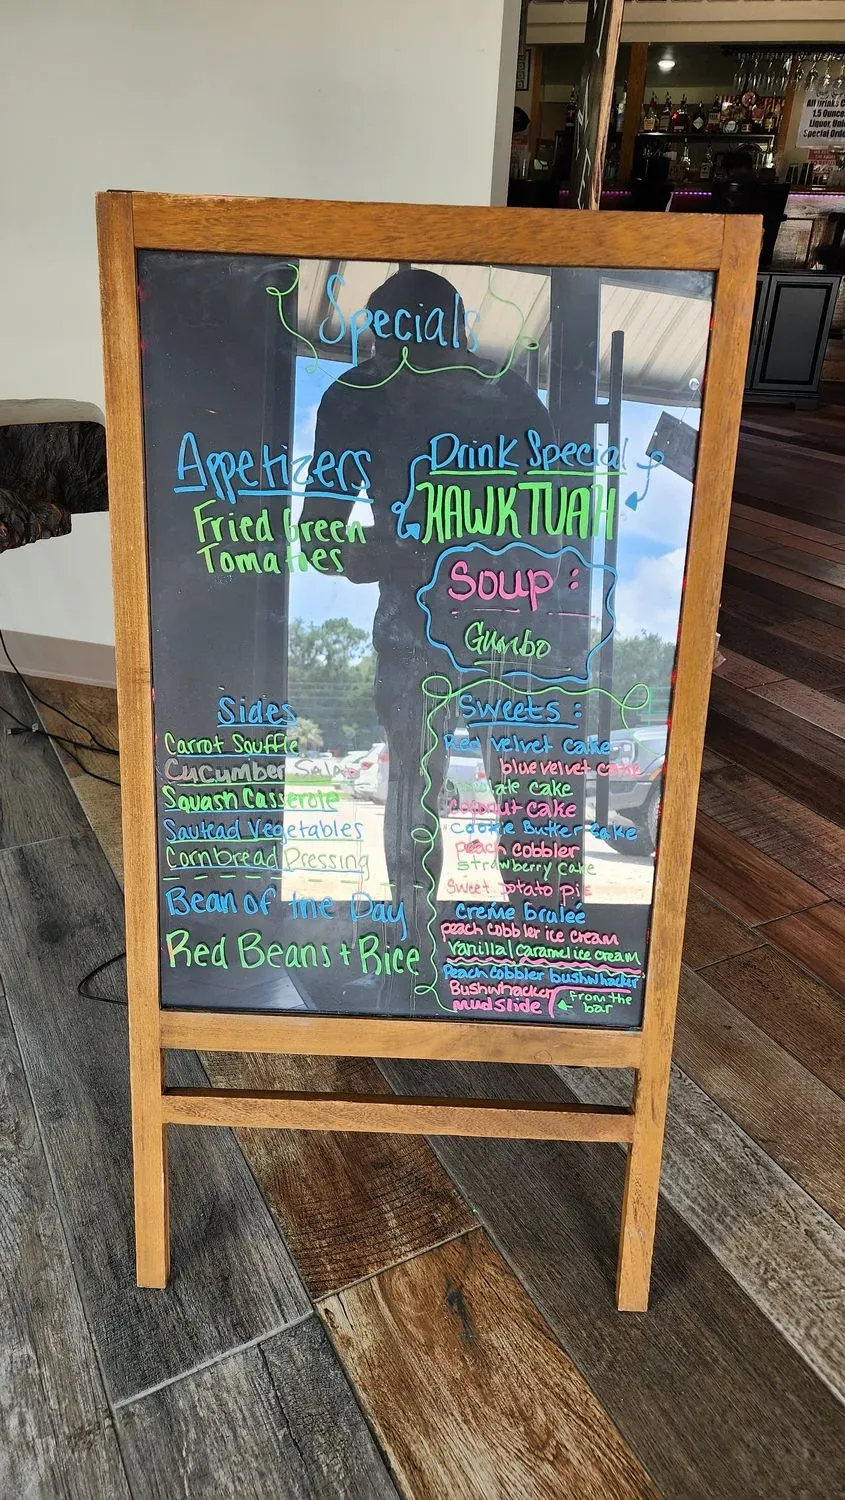 Specials
Appetizers
Fried Green
Tomatoes
Drink Special
HAWK TUAH
Soup :
Gumbo
Sides
Carrot Souffle
Cucumber Salad
Squash Casserole
Sautead Vegetables
Cornbread Dressing
Bean of the Day
Red Beans + Rice
Sweets :
Red velvet cake
blue velvet cake
chocolate cake
Coconut cake
Cookie Butter Cake
peach cobbler
strawberry cake
Sweet potato pie
creme brulée
peach cobbler ice cream
Vanilla/caramel ice cream
Peach Cobbler bushwhacker
Bushwhacker
mudslide
From the
bar
All Drinks
1.5 Ounce
Liquor,
Special Orde